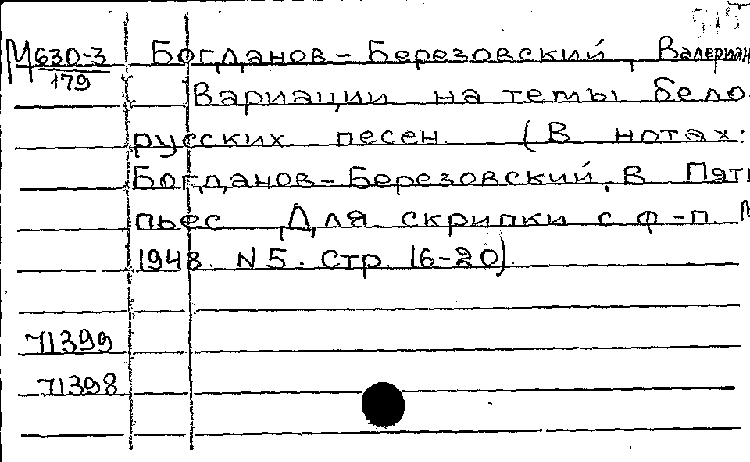 М 630-3 Богданов-Березовский, Валериан
179 Вариации на темы бело
русских песен (В нотах:
Богданов-Березовский, В. Пять
пьес Для скрипки с ф-п. М
1948. N 5. стр 16-20)
71399
71398